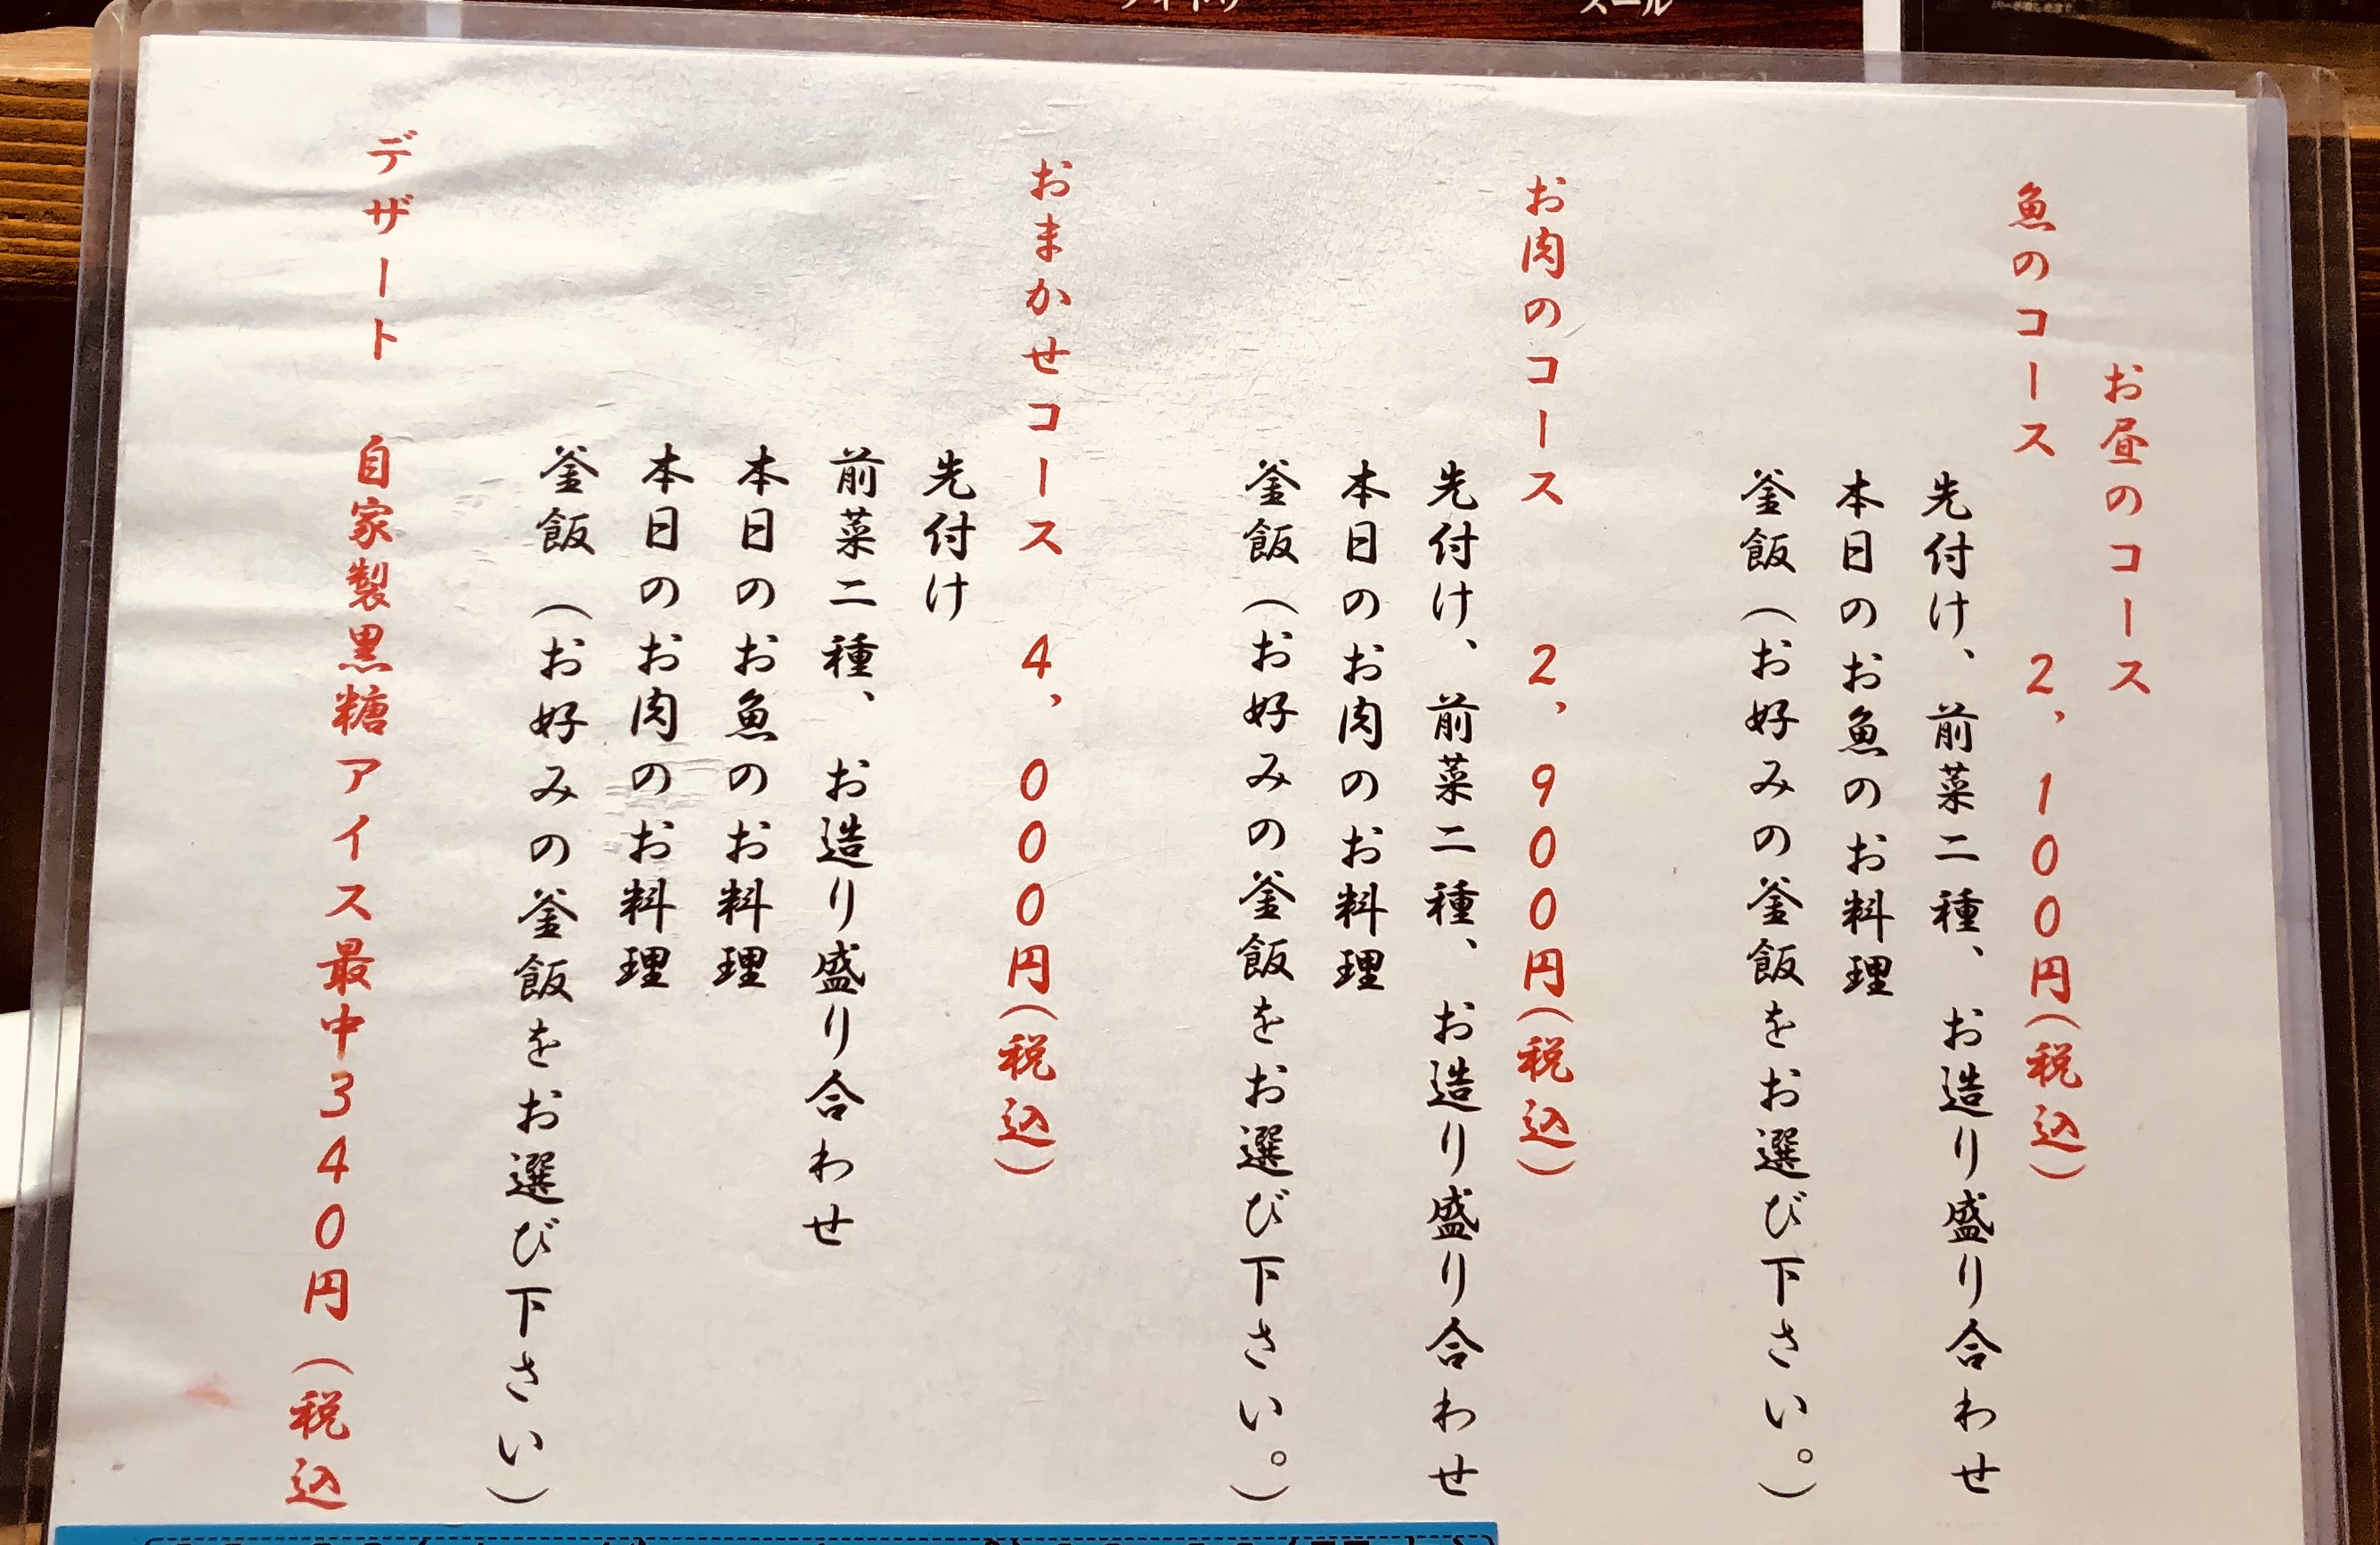 お昼のコース
魚のコース　2,100円(税込)
先付け、前菜二種、お造り盛り合わせ
本日のお魚のお料理
釜飯(お好みの釜飯をお選び下さい。)
お肉のコース　2,900円(税込)
先付け、前菜二種、お造り盛り合わせ
本日のお肉のお料理
釜飯(お好みの釜飯をお選び下さい。)
おまかせコース　4,000円(税込)
先付け
前菜二種、お造り盛り合わせ
本日のお魚のお料理
本日のお肉のお料理
釜飯(お好みの釜飯をお選び下さい)
デザート　自家製黒糖アイス最中340円(税込